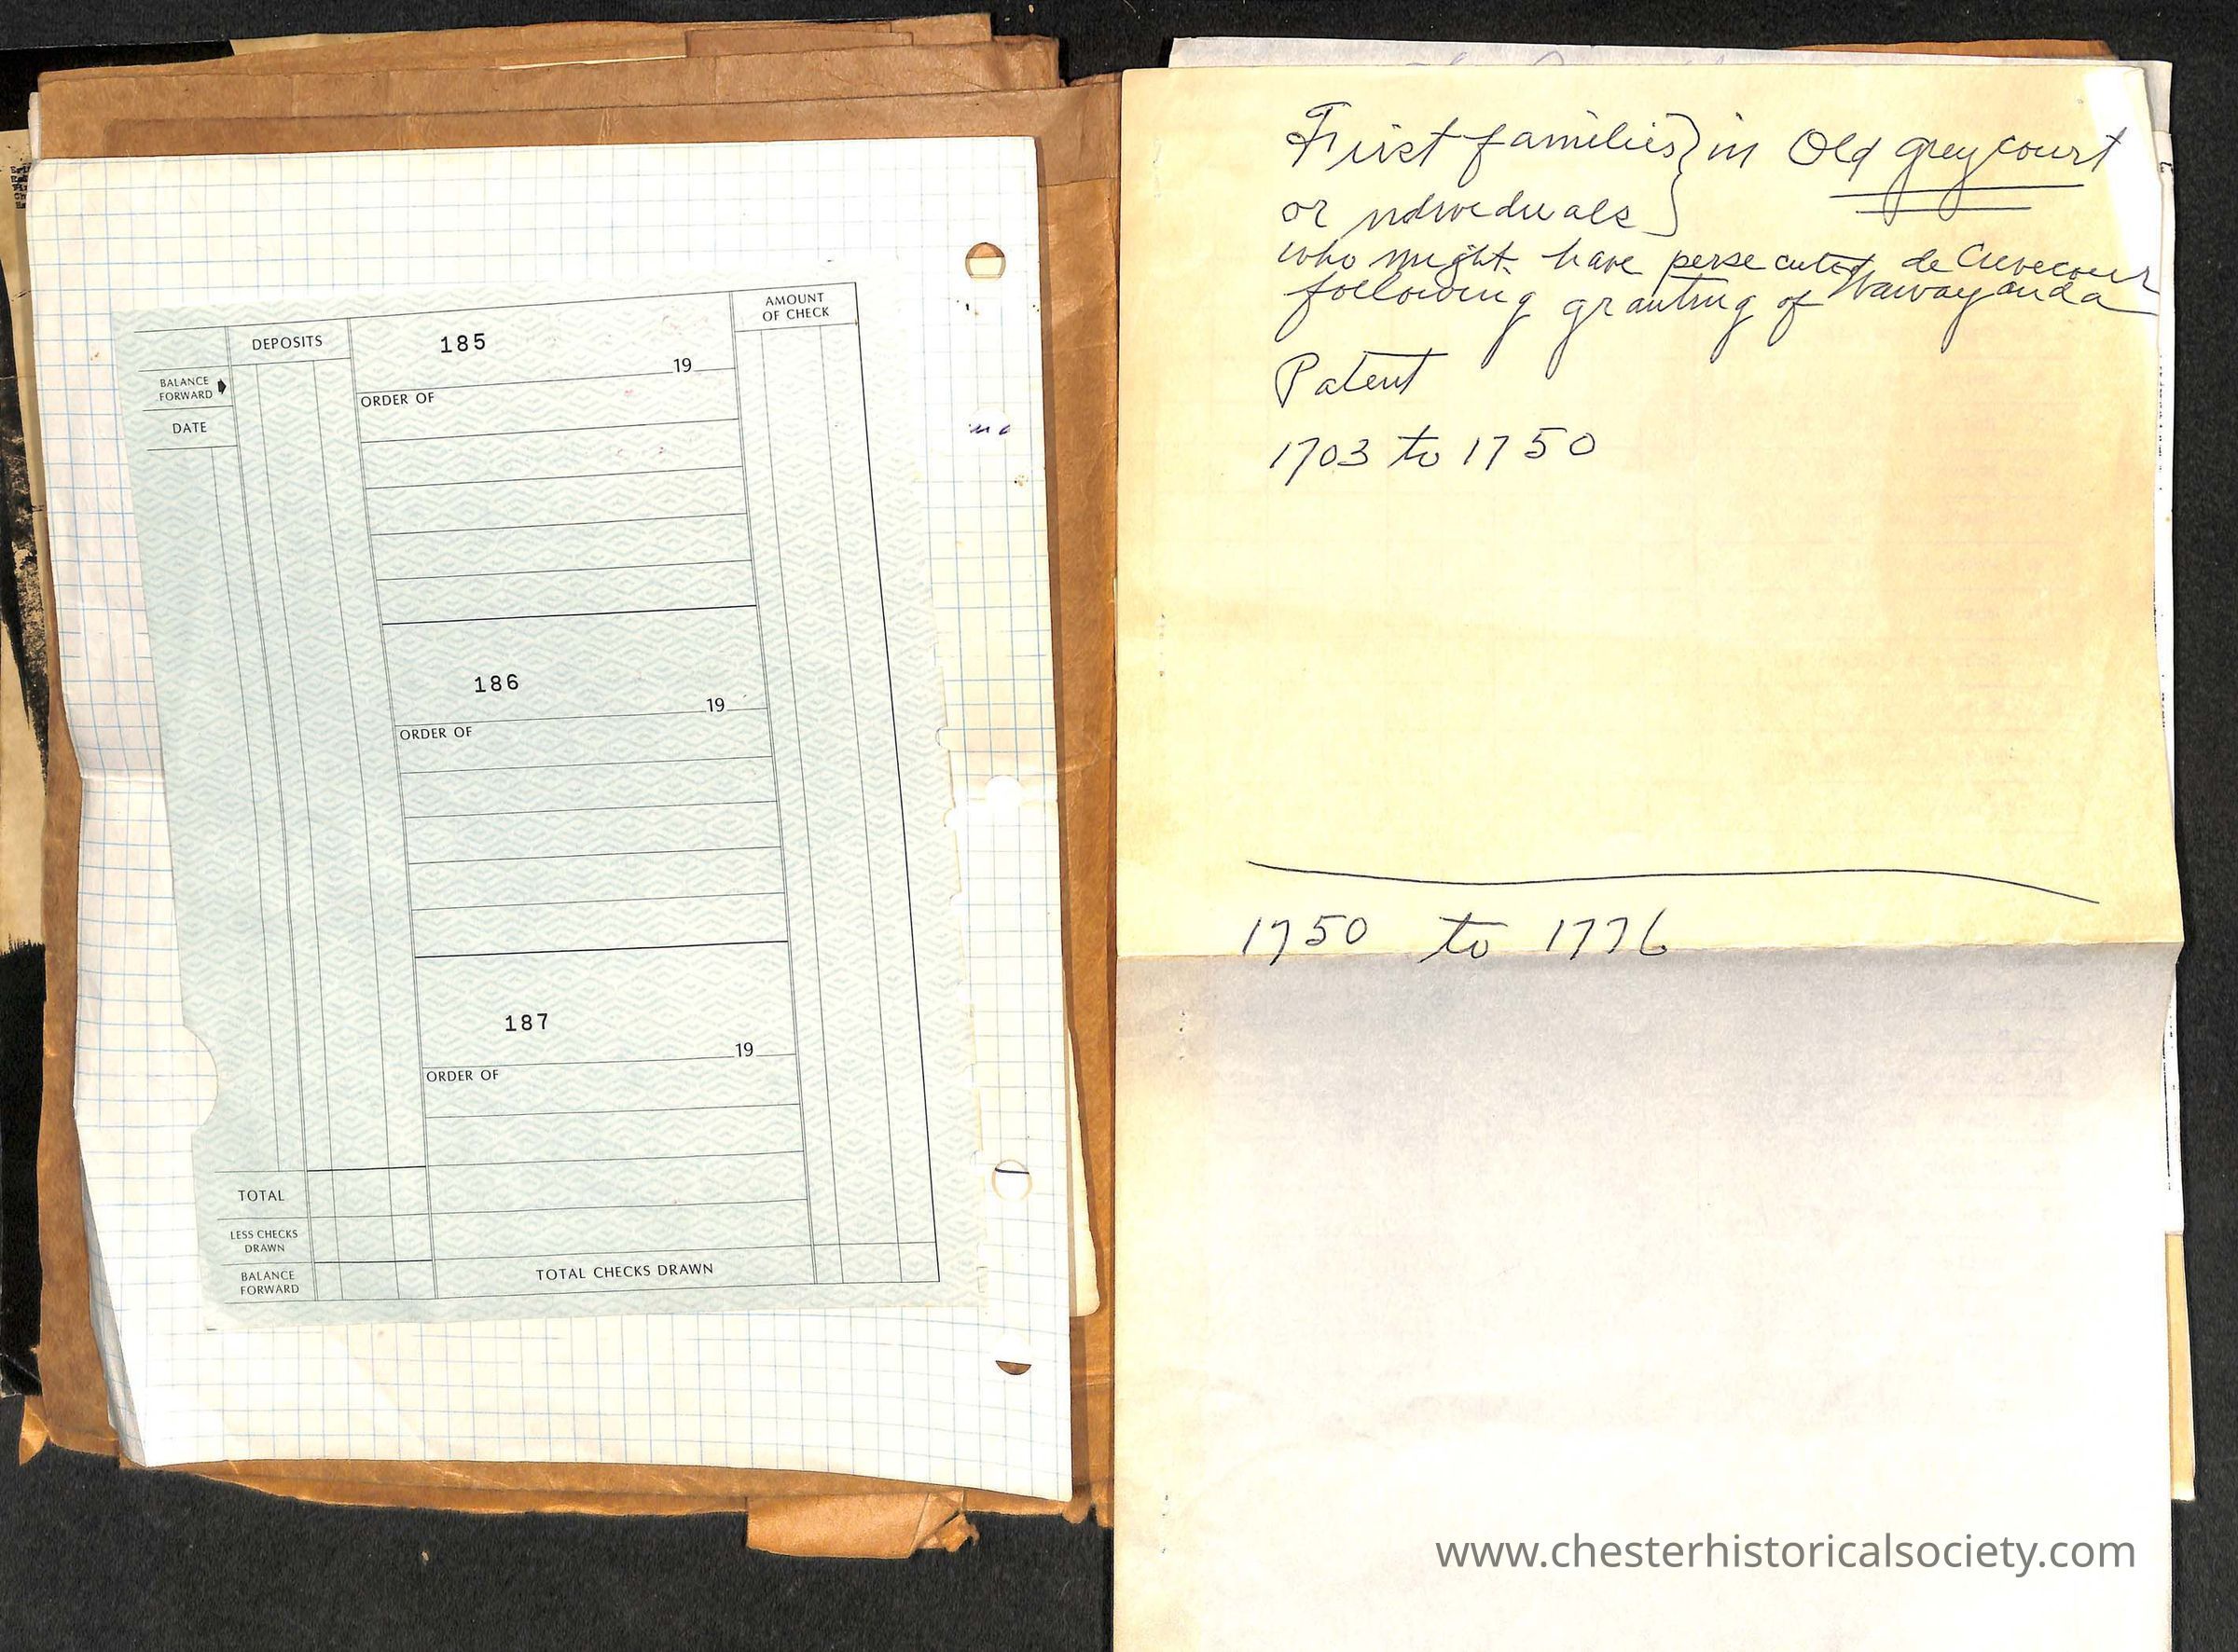 DEPOSITS
185
AMOUNT
OF CHECK
19
BALANCE
FORWARD
ORDER OF
DATE
186
19
ORDER OF
187
19
ORDER OF
TOTAL
LESS CHECKS
DRAWN
BALANCE
FORWARD
TOTAL CHECKS DRAWN
First families } in Old greycourt
or individuals }
who might have persecuted de Crevecour
following granting of Wawayanda
Patent
1703 to 1750
1750 to 1776
www.chesterhistoricalsociety.com